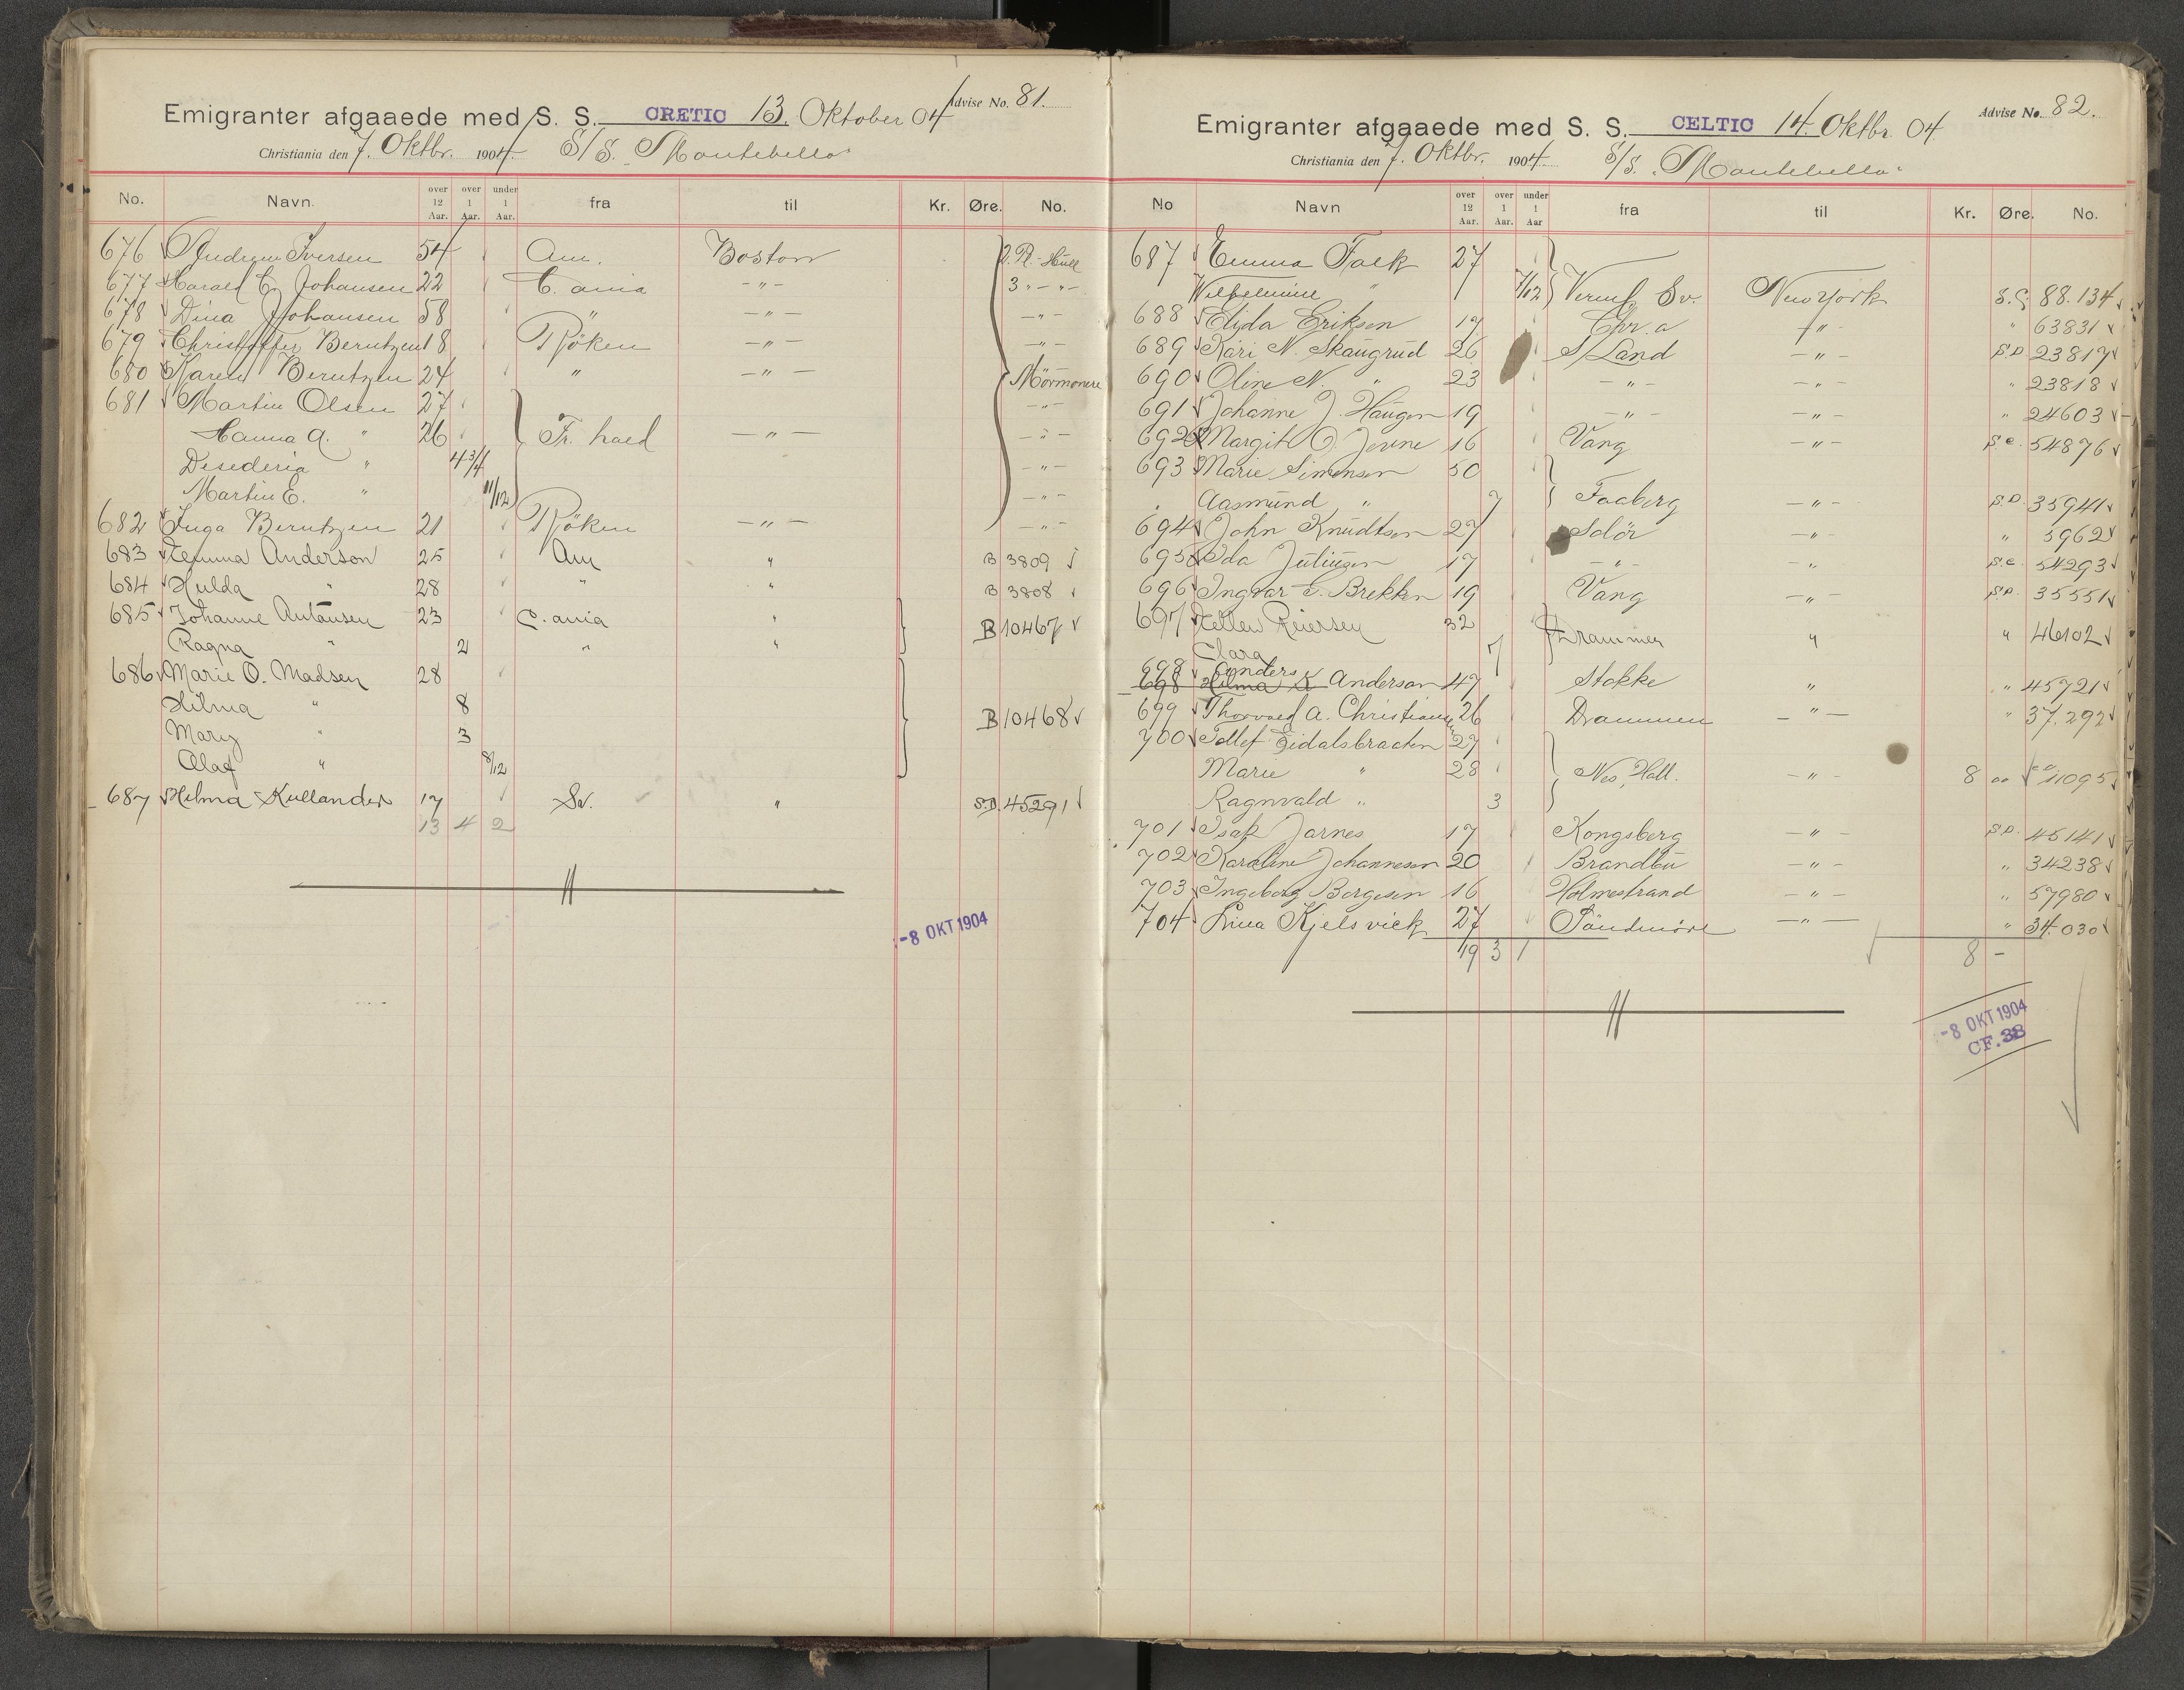 Emigranter afgaaede med S. S. CRETIC 13. Oktober 04 Advise No. 81.
Christiania den 7. Oktbr. 1904. S/S. "Montebello"
No. Navn. over 12 Aar. over 1 Aar. under 1 Aar. fra til Kr. Øre. No.
676 Andrew Iversen 54 Am. Boston 2. Pl. Hull
677 Harald E. Johansen 22 C. ania -"- 3 -"-
678 Dina Johansen 58 " -"- -"-
679 Christoffer Berntzen 18 Röken -"- -"-
680 Karen Berntzen 24 " -"- Mormonere
681 Martin Olsen 27 -"-
Hanna A. " 26 Fr. hald -"- -"-
Desederia " 4 3/4 -"-
Martin E. " 11/12 -"-
682 Inga Berntzen 21 Röken -"- -"-
683 Emma Anderson 25 Am " B 3809
684 Hulda " 28 " " B 3808
685 Johanne Antonsen 23 C. ania " B 10467
Ragna " 2 " "
686 Marie O. Madsen 28
Hilma " 8 B 10468
Mary " 3
Olaf " 8/12
687 Hilma Kullander 17 Sv. " S.D. 45291
13 4 2
-8 OKT 1904
Emigranter afgaaede med S. S. CELTIC 14. Oktbr. 04 Advise No. 82.
Christiania den 7. Oktbr. 1904. S/S. "Montebello"
No Navn over 12 Aar. over 1 Aar. under 1 Aar fra til Kr. Øre. No.
687 Emma Falk 27
Wilhelmine " 7/12 Verml. Sv. New York S.C. 88.134
688 Elida Eriksen 17 Chr. a -"- " 63831
689 Kari N. Skaugrud 26 S Land -"- S.D. 23817
690 Oline N. " 23 -"- -"- " 23818
691 Johanne J. Haugen 19 -"- -"- " 24603
692 Margit O. Jevne 16 Vang -"- S.C. 54876
693 Marie Simensen 50
Aasmund " 7 Faaberg -"- S.D. 35941
694 John Knudtsen 27 Solör -"- " 5962
695 Ida Julinsen 17 -"- -"- S.C. 54293
696 Ingvar E. Brekken 19 Vang -"- S.D. 35551
697 Ellen Reiersen 32 Drammen " " 46102
Clara 7
698 Anders
698 Hilma K Anderson 47 Stokke " " 45721
699 Thorvald A. Christiansen 26 Drammen -"- " 37.292
700 Tollef Eidalsbraaten 27
Marie " 28 Nes, Hall. -"- 8 00 11095
Ragnvald " 3
701 Isak Jarnes 17 Kongsberg -"- S.D. 45141
702 Karoline Johannesen 20 Brandbu -"- " 34238
703 Ingeborg Borgesen 16 Holmestrand -"- " 57980
704 Lina Kjelsvick 27 Söndmöre -"- " 34.030
19 3 1 8 -
-8 OKT 1904
CF. 38